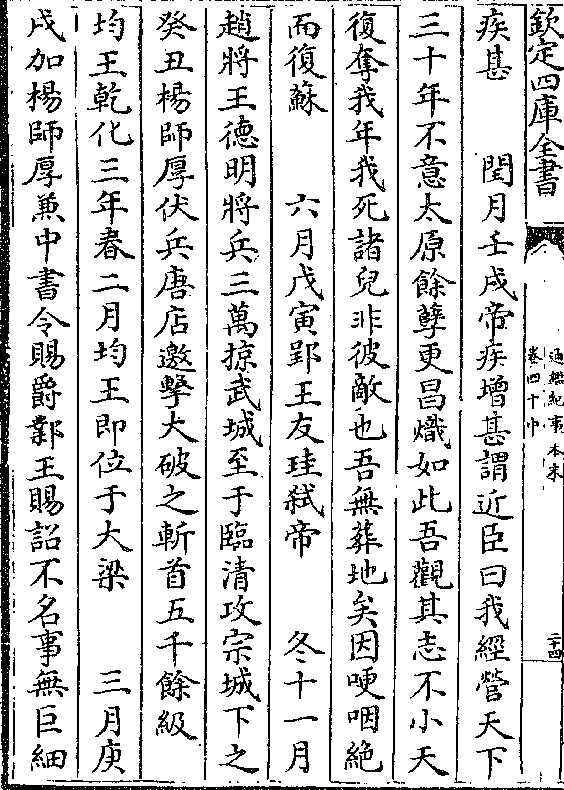 欽定四庫全書
通鑑紀事本末
卷四十中
二十四
疾甚　閏月壬戌帝疾增甚謂近臣曰我經營天下
三十年不意太原餘孽更昌熾如此吾觀其志不小天
復奪我年我死諸兒非彼敵也吾無葬地矣因哽咽絶
而復蘇　六月戊寅郢王友珪弑帝　冬十一月
趙將王德明將兵三萬掠武城至于臨清攻宗城下之
癸丑楊師厚伏兵唐店邀擊大破之斬首五千餘級
均王乾化三年春二月均王即位于大梁　三月庚
戌加楊師厚兼中書令賜爵鄴王賜詔不名事無巨細